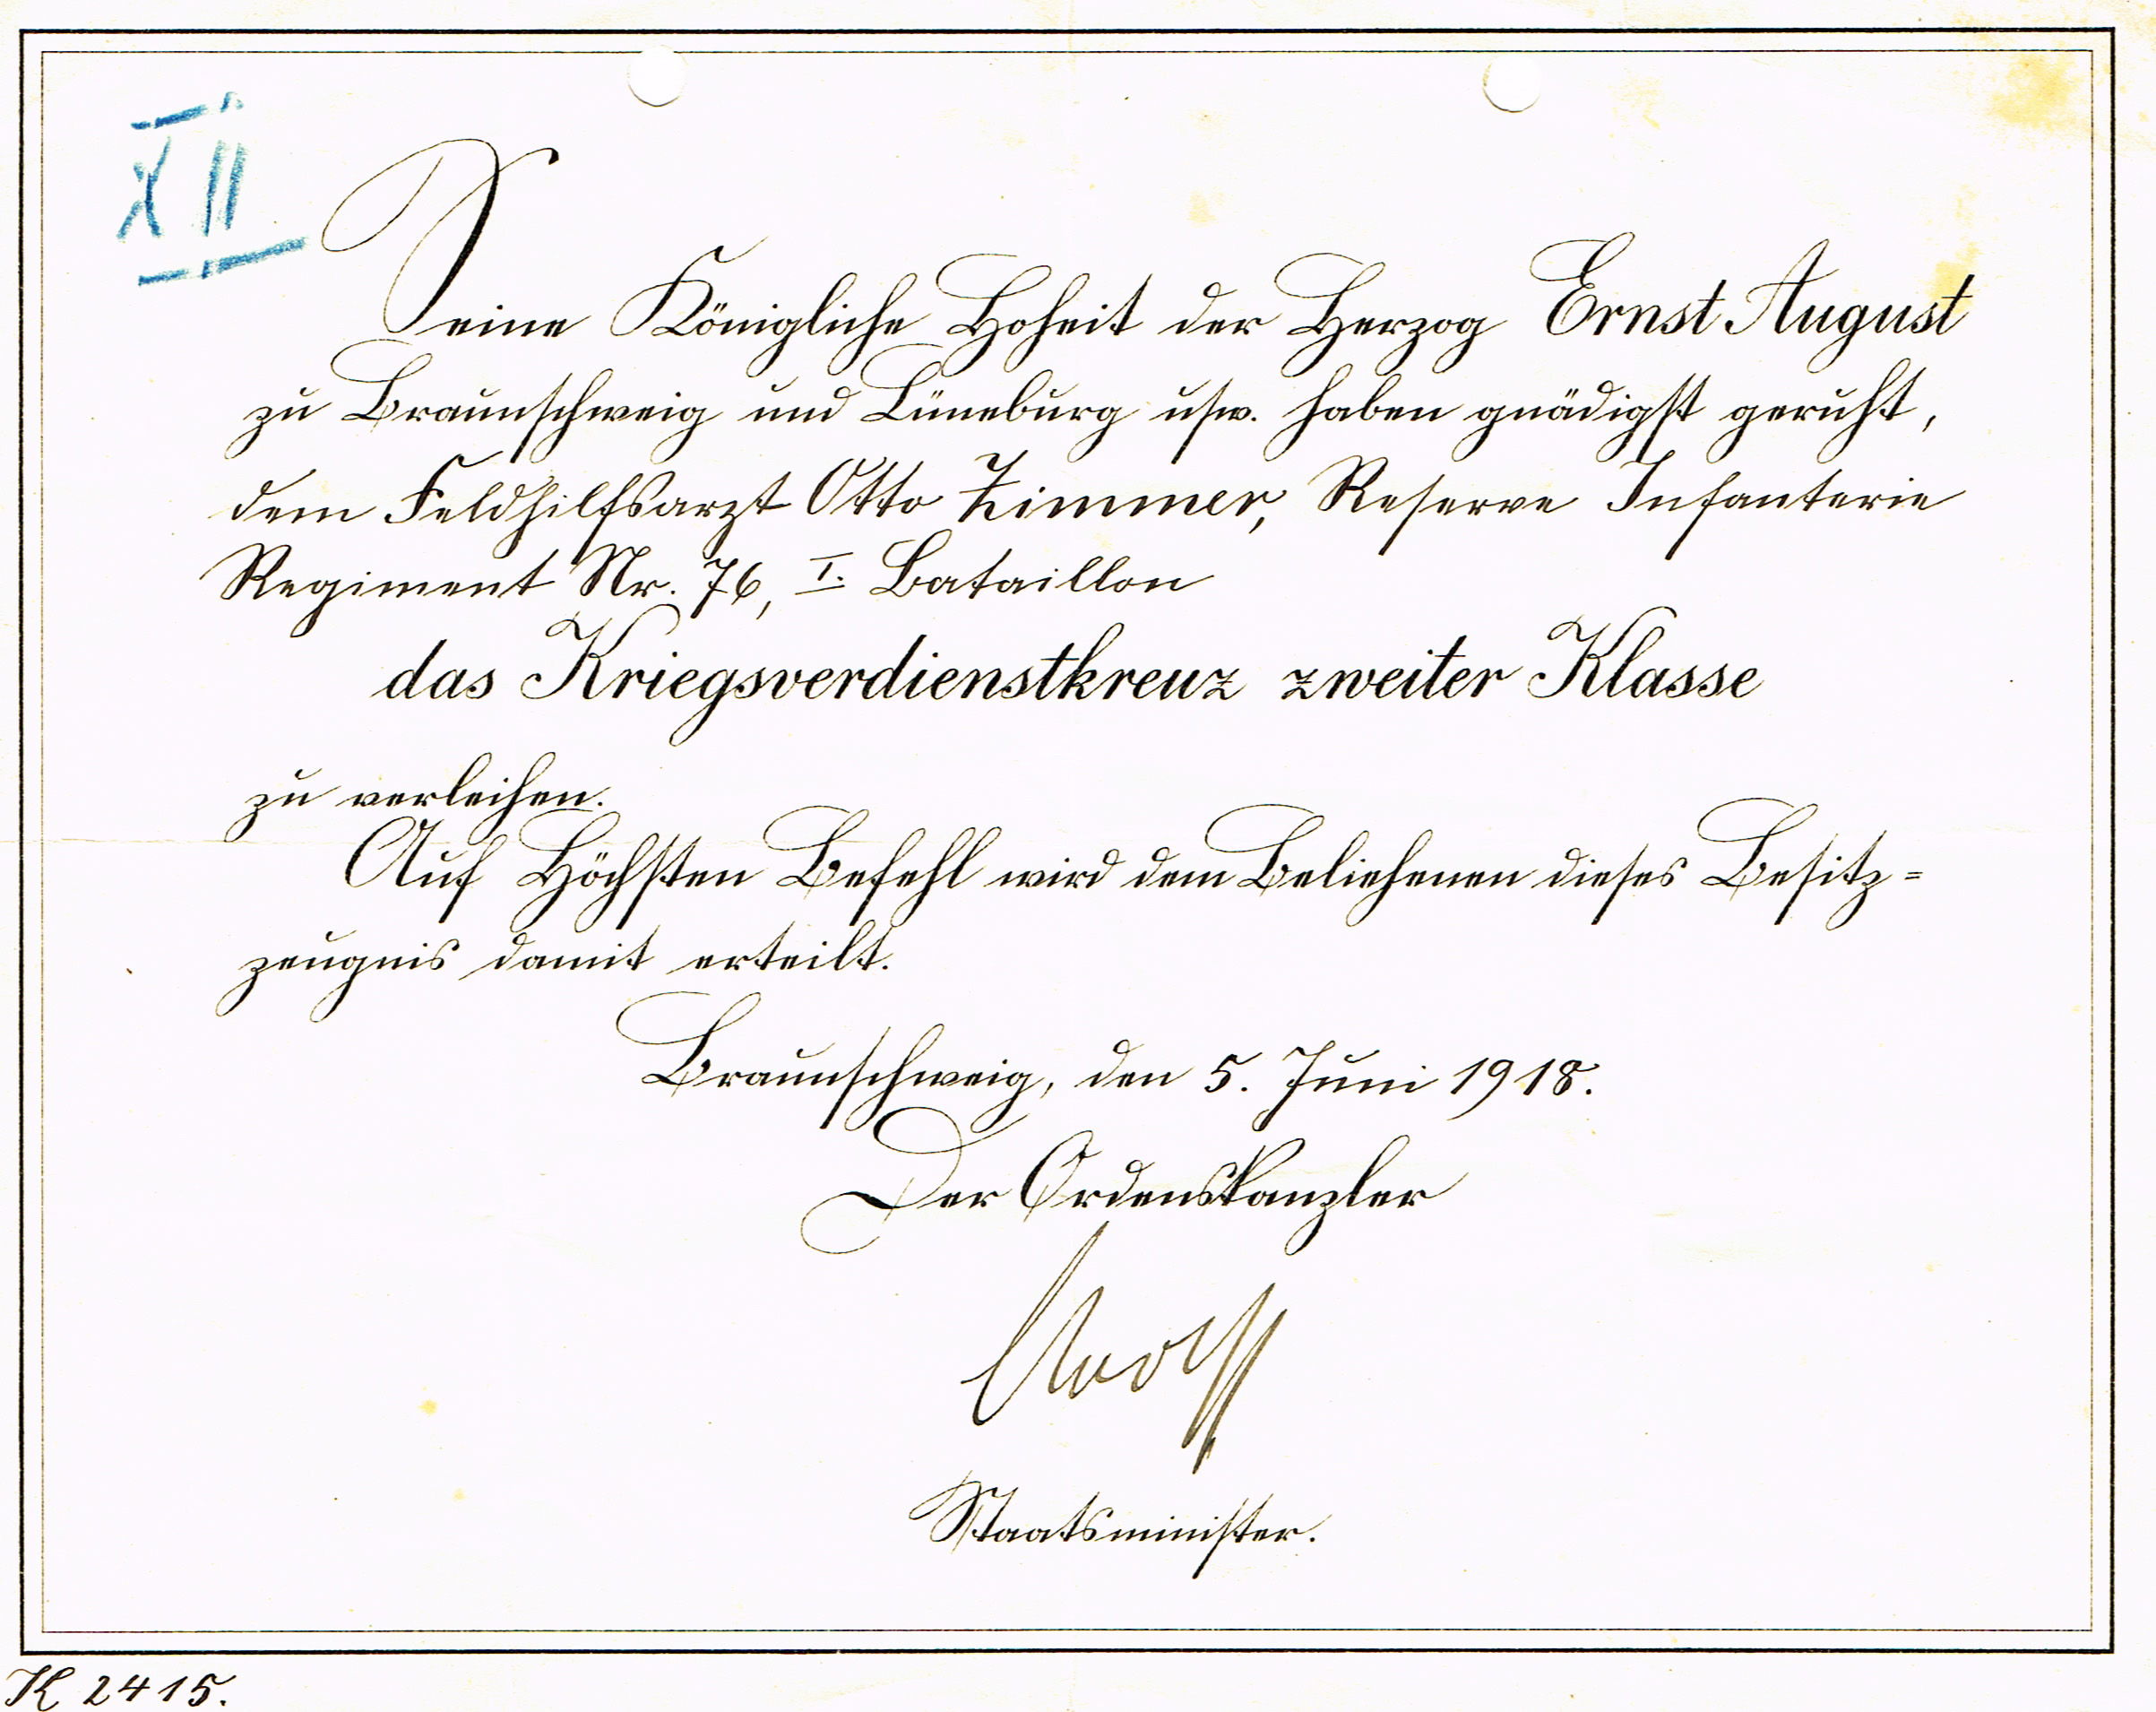 XII
Seine Königliche Hoheit der Herzog Ernst August
zu Braunschweig und Lüneburg usw. haben gnädigst geruht,
dem Feldhilfsarzt Otto Zimmer, Reserve Infanterie
Regiment Nr. 76, I. Bataillon
das Kriegsverdienstkreuz zweiter Klasse
zu verleihen.
Auf Höchsten Befehl wird dem Beliehenen dieses Besitz=
zeugnis damit erteilt.
Braunschweig, den 5. Juni 1918.
Der Ordenskanzler
Staatsminister.
K 2415.